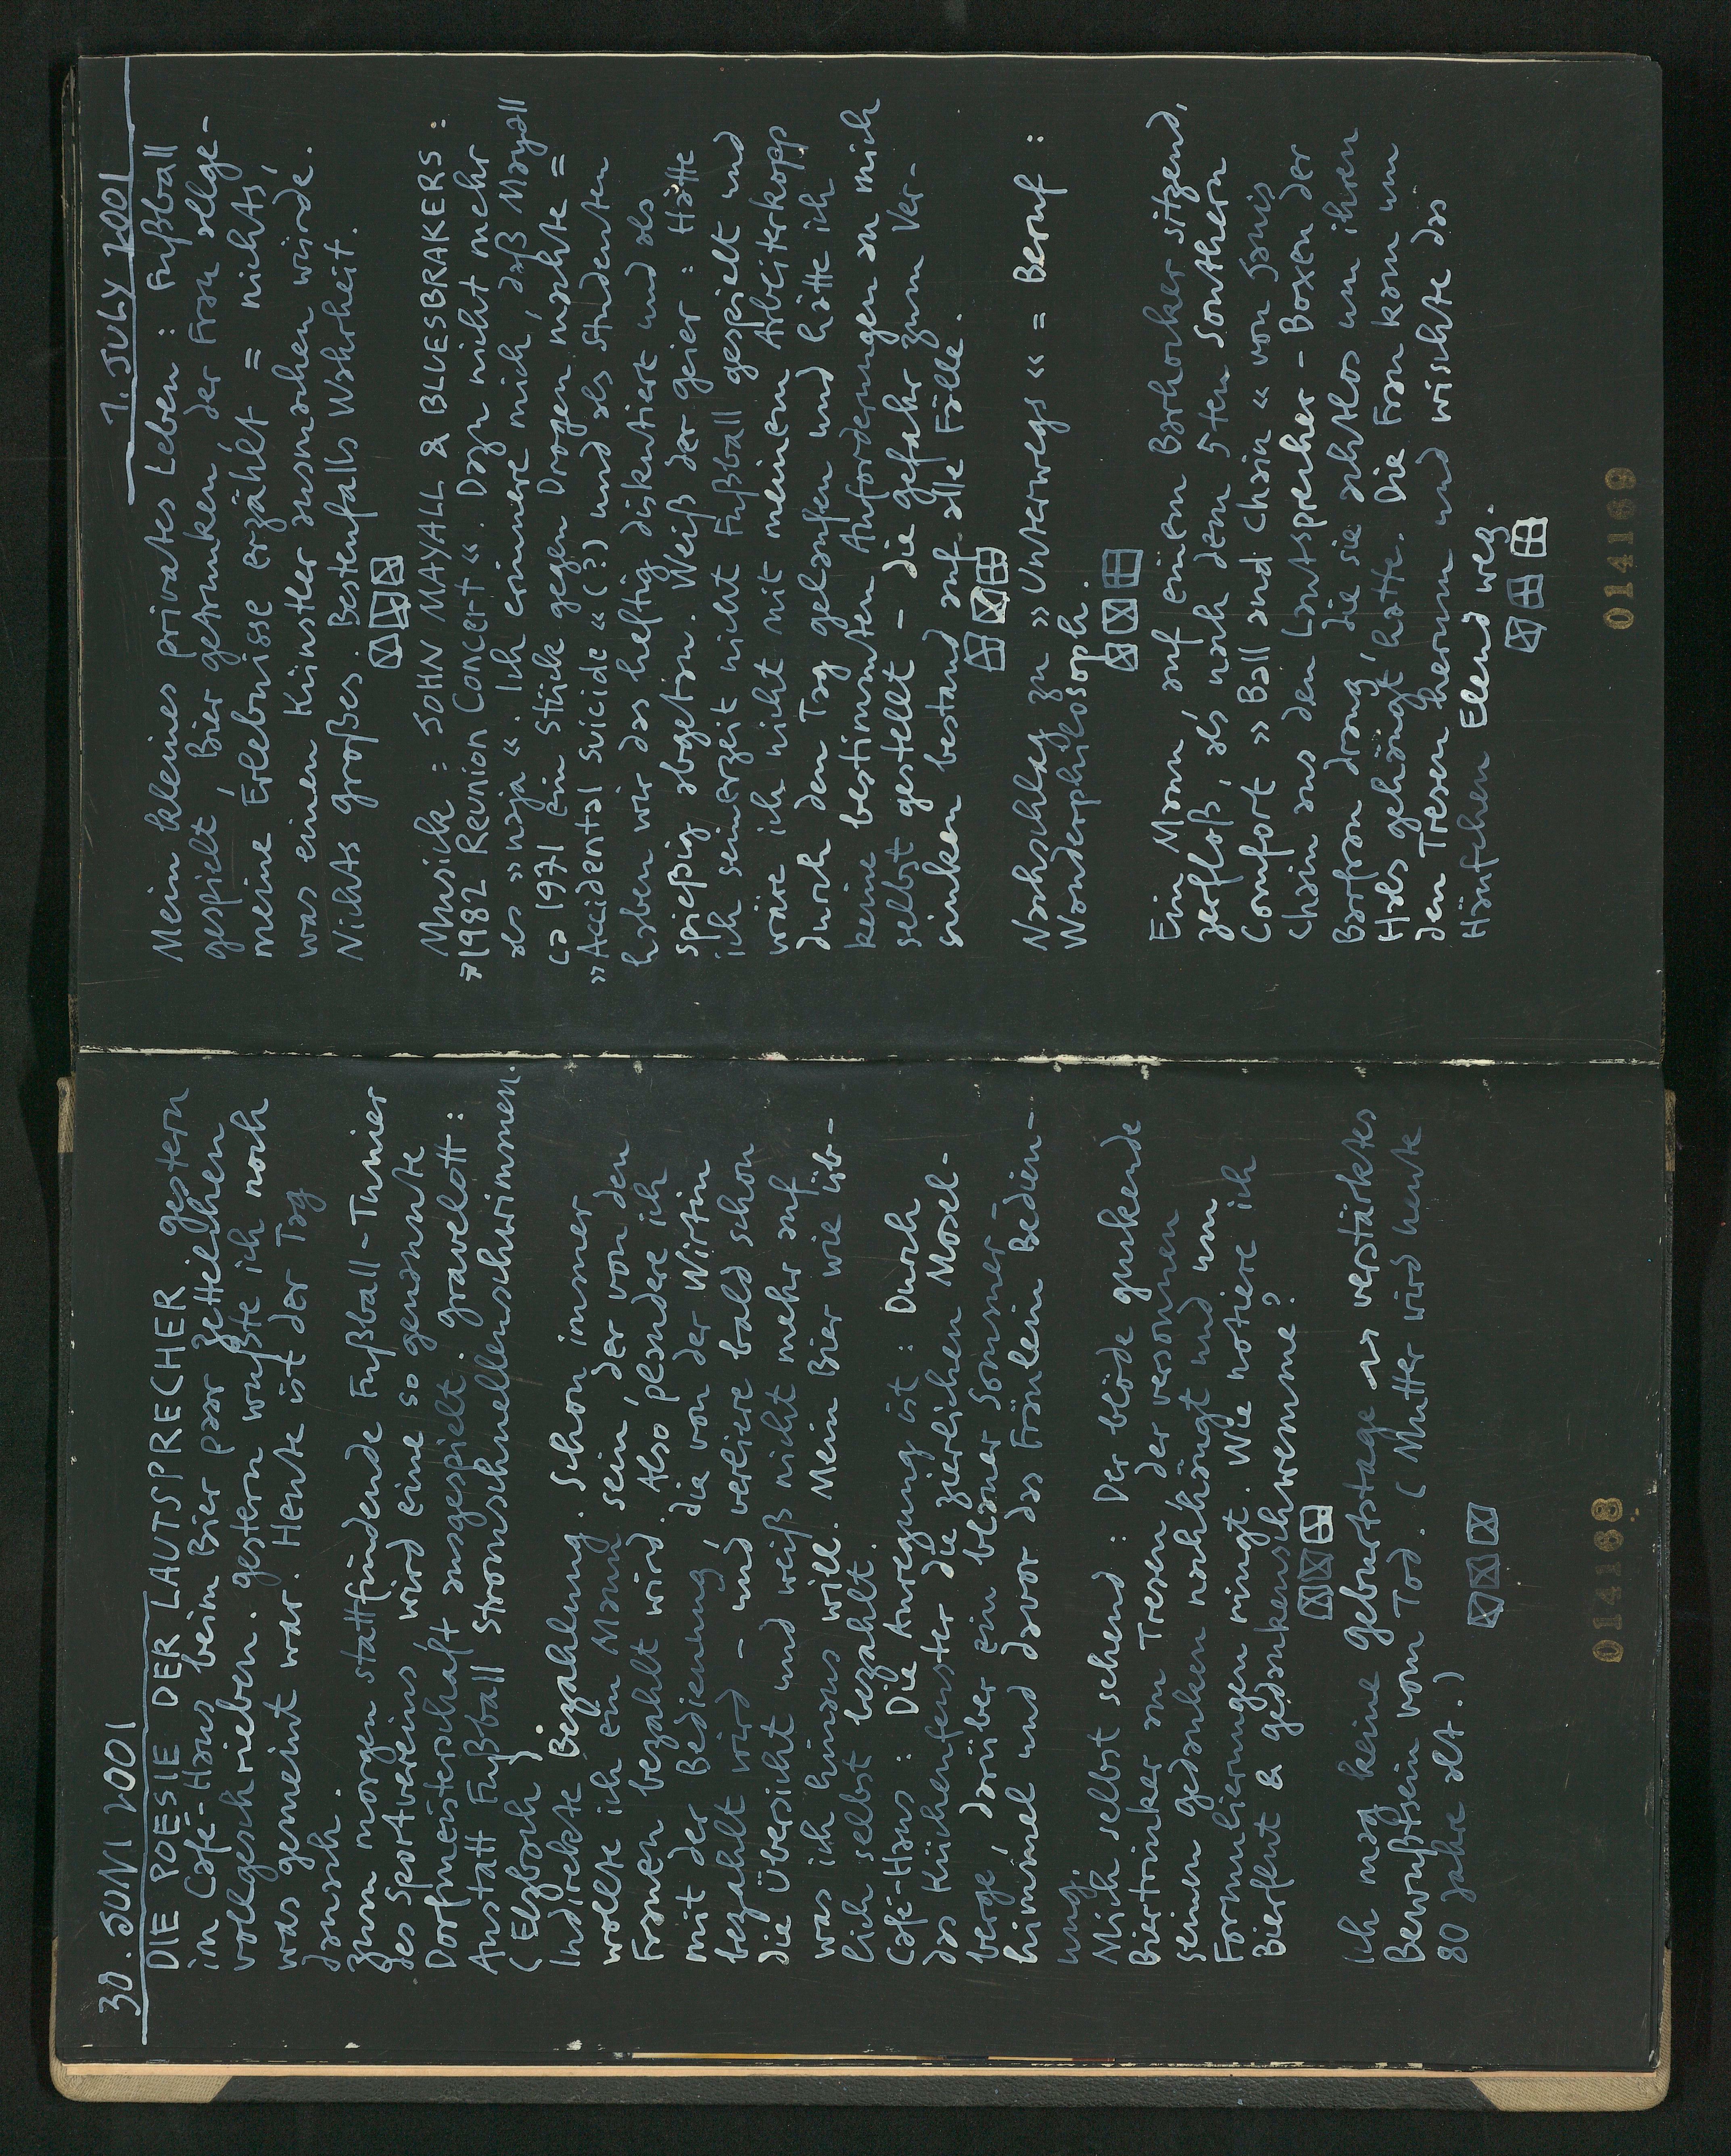 30. JUNI 2001
DIE POESIE DER LAUTSPRECHER gestern
im Café-Haus beim Bier paar Zettelchen
vollgeschrieben. Gestern wußte ich noch
was gemeint war. Heute ist der Tag
danach.
Zum morgen stattfindende Fußball-Tunier
des Sportvereins wird eine so genannte
Dorfmeisterschaft ausgespielt. Gravelott:
Anstatt Fußball Stromschnellenschwimmen.
(Elzbach)
Indirekte Bezahlung. Schon immer
wollte ich ein Mann sein, der von den
Frauen bezahlt wird. Also plaudere ich
mit der Bedienung, die von der Wirtin
bezahlt wird - und verliere bald schon
die Übersicht und weiß nicht mehr auf
was ich hinaus will. Mein Bier wie üb-
lich selbst bezahlt.
Café-Haus: Die Anregung ist: Durch
das Küchenfenster die zierlichen Mosel-
berge, darüber ein blauer Sommer-
himmel und davor das Fräulein Bedien-
ung.
Mich selbst sehend: Der blöde guckende
Biertrinker am Tresen, der versonnen
seinen Gedanken nachhängt und um
Formulierungen ringt. Wie notiere ich
Bierflut & Gedankenschwemme?
Ich mag keine Geburtstage verstärktes
Bewußtsein vom Tod. (Mutter wird heute
80 Jahre alt.)
014168
1. JULY 2001
Mein kleines privates Leben: Fußball
gespielt, Bier getrunken, der Frau allge-
meine Erlebnisse erzählt = nichts,
was einen Künstler ausmachen würde.
Nichts großes. Bestenfalls Wahrheit.
Musik: JOHN MAYALL & BLUESBRAKERS:
»1982 Reunion Concert«. Dazu nicht mehr
als »naja«. Ich erinnere mich, daß Mayall
ca 1971 ein Stück gegen Drogen machte =
»Accidental suicide« (?) und als Studenten
haben wir das heftig diskutiert und als
spießig abgetan. Weiß der Geier: Hätte
ich seinerzeit nicht Fußball gespielt und
wäre ich nicht mit meinem Arbeiterkopp
durch den Tag gelaufen und hätte ich
keine bestimmten Anforderungen an mich
selbst gestellt - die Gefahr zum Ver-
sinken bestand auf alle Fälle.
Nachschlag zu »Unterwegs« = Beruf:
Wanderphilosoph.
Ein Mann, auf einem Barhocker sitzend,
zerfloß, als nach dem 5ten Southern
Comfort »Ball and Chain« von Janis
Chain aus den Lautsprecher-Boxen der
Barfrau drang, die sie achtlos um ihren
Hals gehängt hatte. Die Frau kam um
den Tresen herum und wischte das
Häufchen Elend weg.
014169